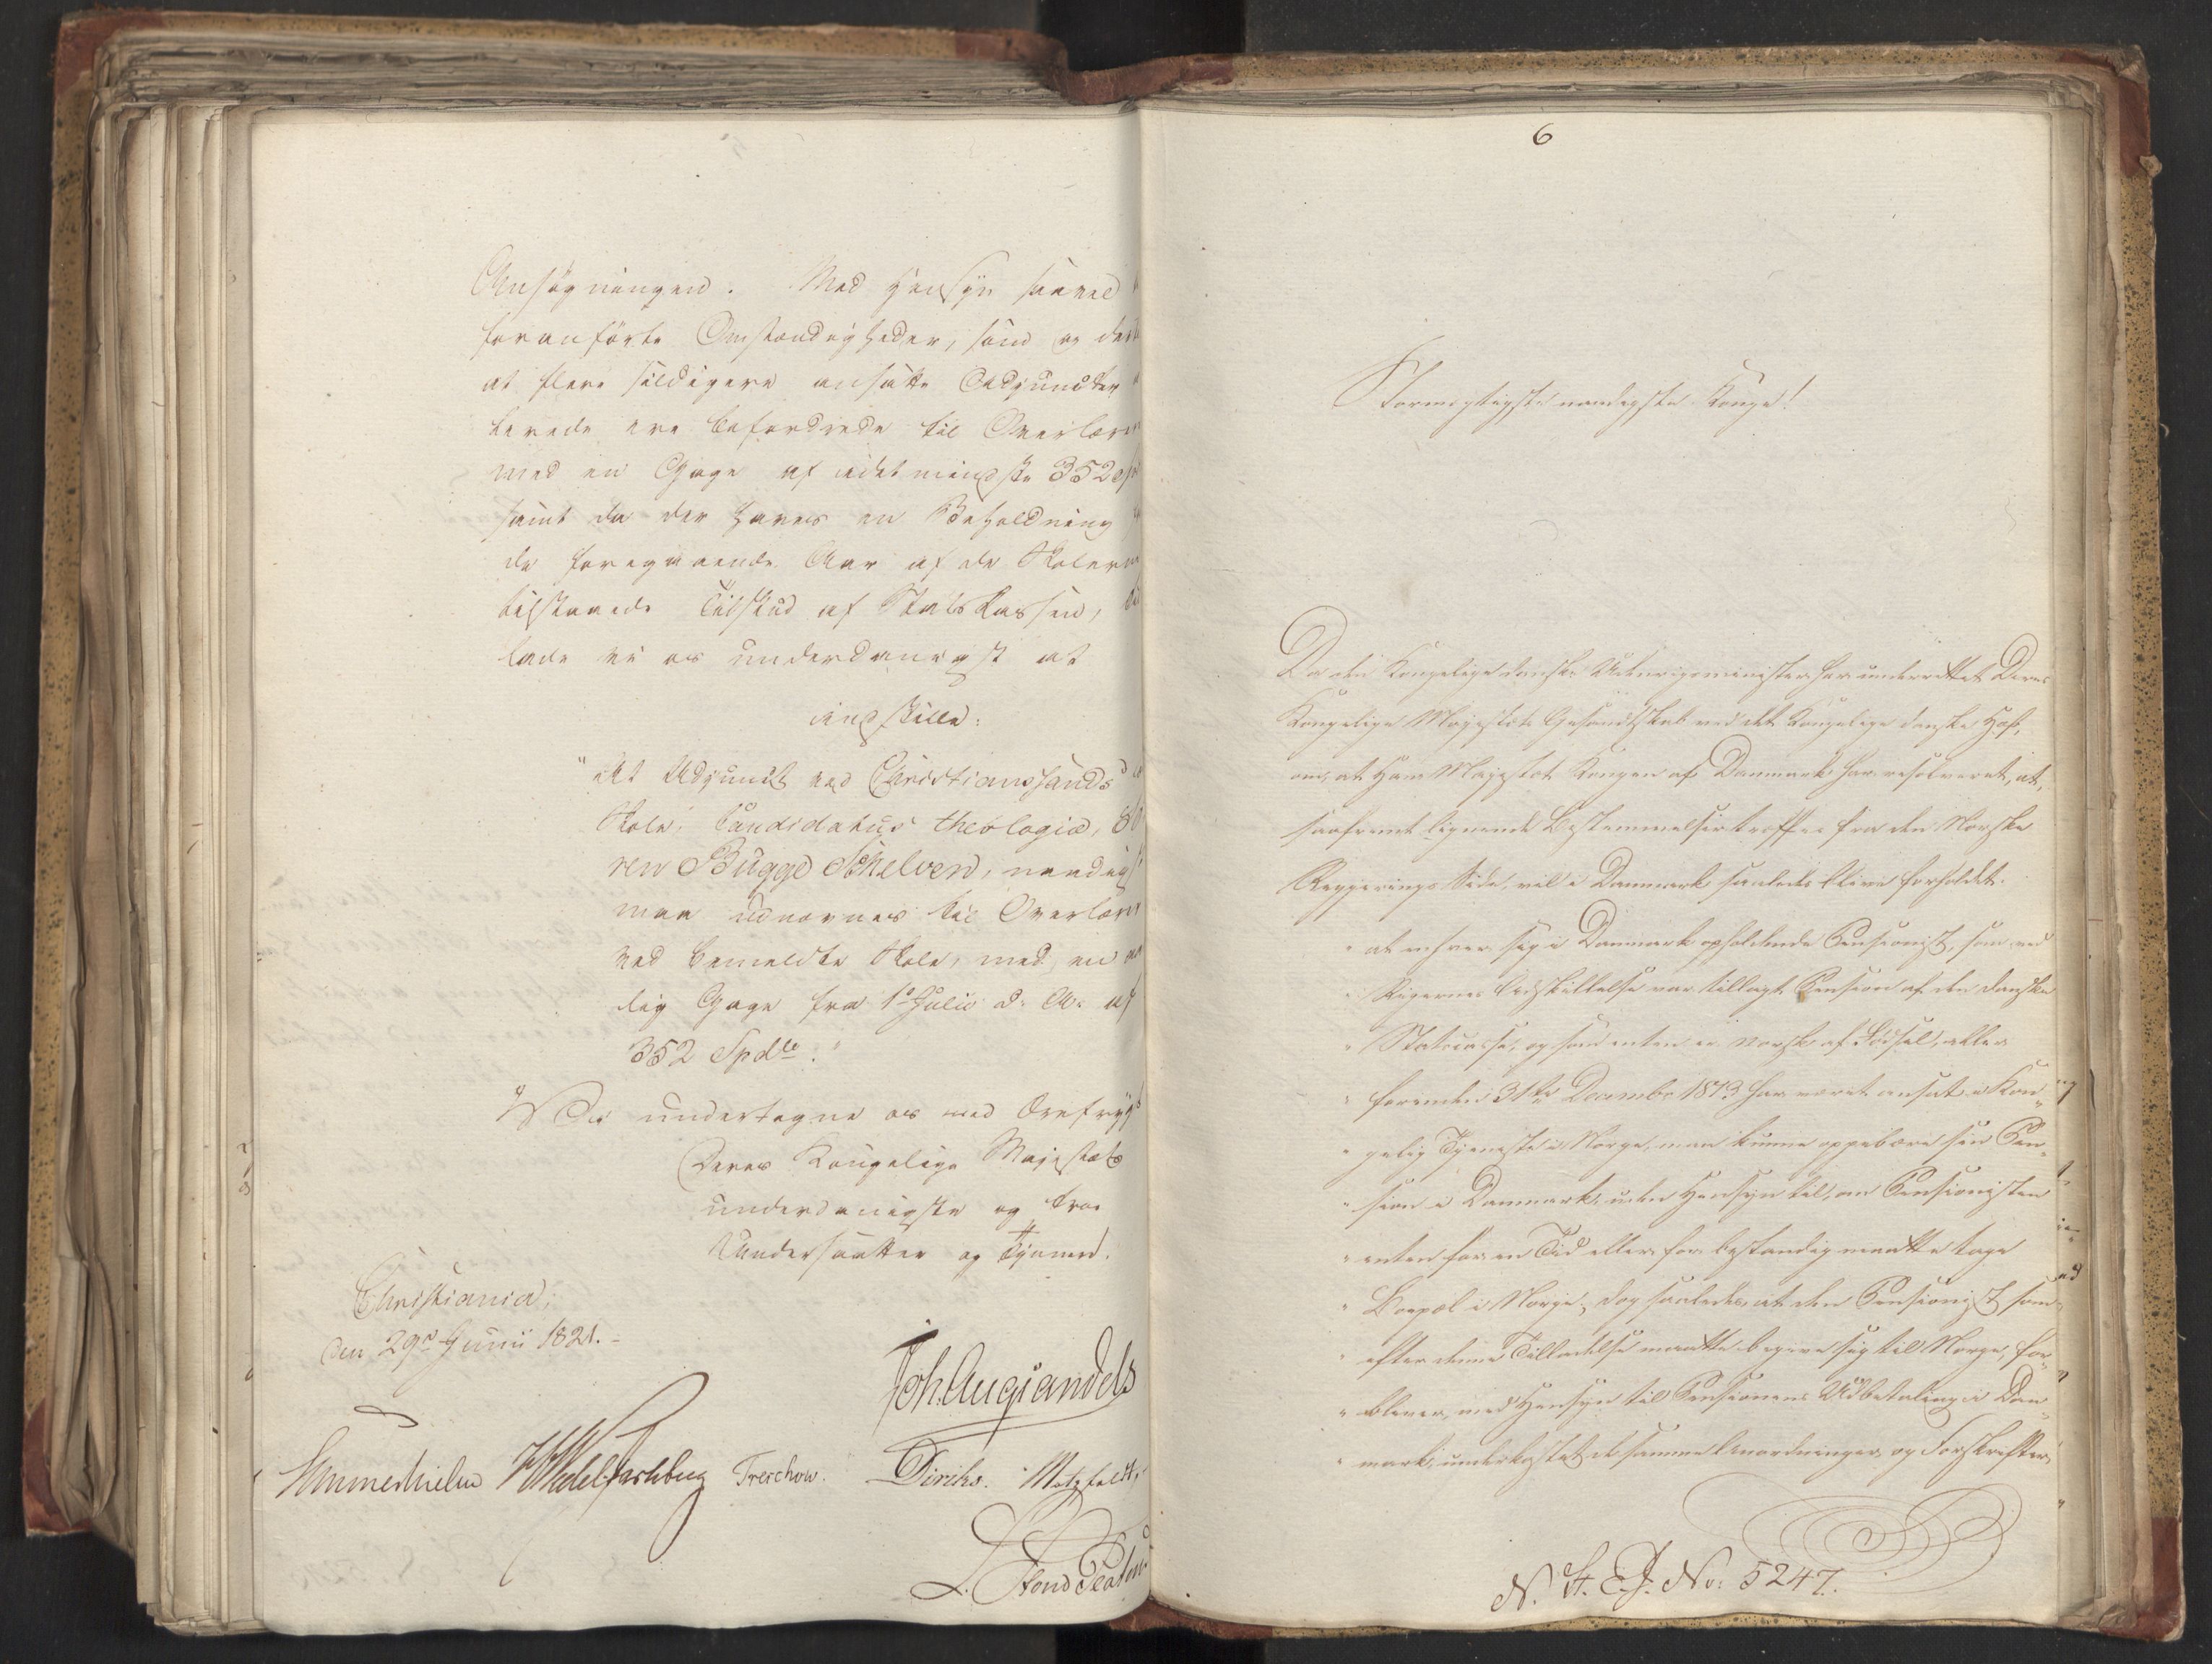 Ansøgningen. Med Hensyn saavel
foranførte Omstændigheder, som og der
at flere sildigere ansatte Adjuncter
berede ere befordrede til Overlærer
med en Gage af idetmindste 352 Sp
samt da der haves en Beholdning
de foregaaende Aar af de Skolerne
tilstaaede Tilskud af Statskassen,
lade vi os underdanigst at
indstille:
"At Adjunct ved Christianssands
Skole, Candidatus theologiæ, Sö
ren Bugge Schelven, naadigst
maa udnævnes til Overlærer
ved bemeldte Skole, med en aar
lig Gage fra 1ste Julii d. A. af
352 Spdlr."
Vi undertegne os med Ærefrygt
Deres Kongelige Majestæts
underdanigste og troe
Undersaatter og Tjenere.
Christiania,
den 29de Junii 1821.
Joh. Aug. Sandels
Sommerhielm HWedelJarlsberg Treschow. Diriks. Motzfeldt.
L. Fond
6
Stormægtigste naadigste Konge!
Da den Kongelige danske Udenrigsminister har underrettet Deres
Kongelige Majestæts Gesandtskab ved det Kongelige danske Hof,
om, at Hans Majestæt Kongen af Danmark har resolveret, at,
saafremt lignende Bestemmelser træffes fra den Norske
Regjerings Side, vil i Danmark saaledes blive forholdet:
" at enhver sig i Danmark opholdende Pensionist, som ved
" Rigernes Adskillelse var tillagt Pension af den danske
" Statscasse, og som enten er norsk af Fødsel, eller
" forinden 31te December 1813 har været ansat i Kon¬
" gelig Tjeneste i Norge, maa kunne oppebære sin Pen¬
" sion i Danmark, uden Hensyn til, om Pensionisten
" enten for en Tid eller for bestandig maatte tage
" Boepæl i Norge, dog saaledes, at den Pensionist, som
" efter denne Tilladelse maatte begive sig til Norge, for¬
" bliver, med Hensyn til Pensionens Udbetaling i Dan¬
" mark, underkastet de samme Anordninger og Forskrifter,
N. St. E. J. No. 5247.